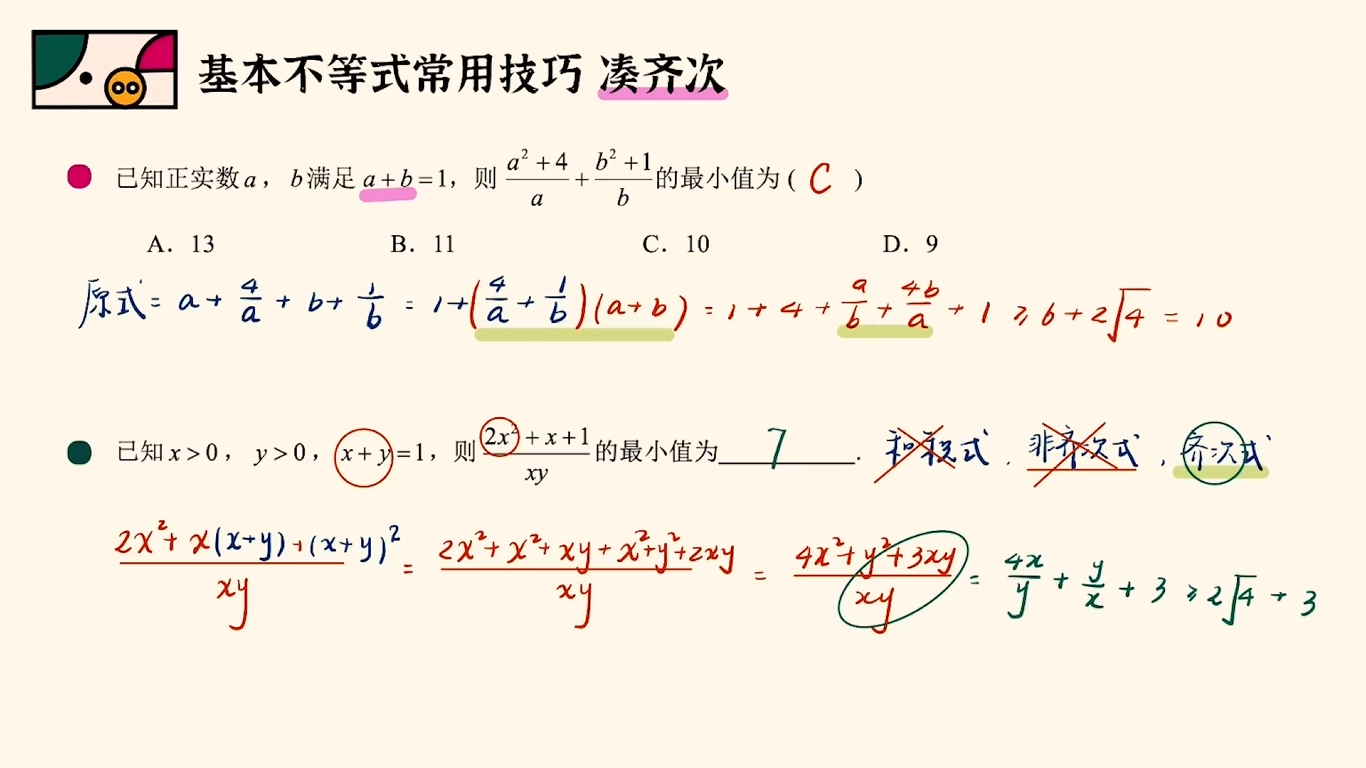 基本不等式常用技巧 凑齐次
已知正实数a，b满足a+b=1，则 (a²+4)/a + (b²+1)/b 的最小值为 ( C )
A．13 B．11 C．10 D．9
原式 = a + 4/a + b + 1/b = 1+(4/a + 1/b)(a+b) = 1+4+ a/b + 4b/a +1 ≥ 6+2√4 = 10
已知x>0，y>0，x+y=1，则 (2x²+x+1)/xy 的最小值为 7 ． 和积式，非齐次式，齐次式
(2x²+x(x+y)+(x+y)²)/xy = (2x²+x²+xy+x²+y²+2xy)/xy = (4x²+y²+3xy)/xy = 4x/y + y/x + 3 ≥ 2√4 + 3